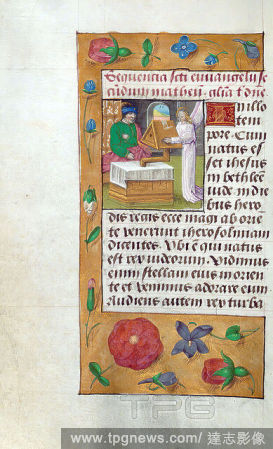 Sequencia scti euuangelii se
cūdum matheū. glīa t̄ dn̄e.
In illo
tem
pore. Cum
natus es
set ihesus
in bethleē
iude in die
bus hero
dis regis ecce magi ab orie
te venerūt iherosolimam
dicentes. Ubi ē qui natus
est rex iudeorum. Vidimus
enim stellam eius in orien
te et venimus adorare eum
Audiens autem rex turba
TPG
www.tpgnews.com/達志影像